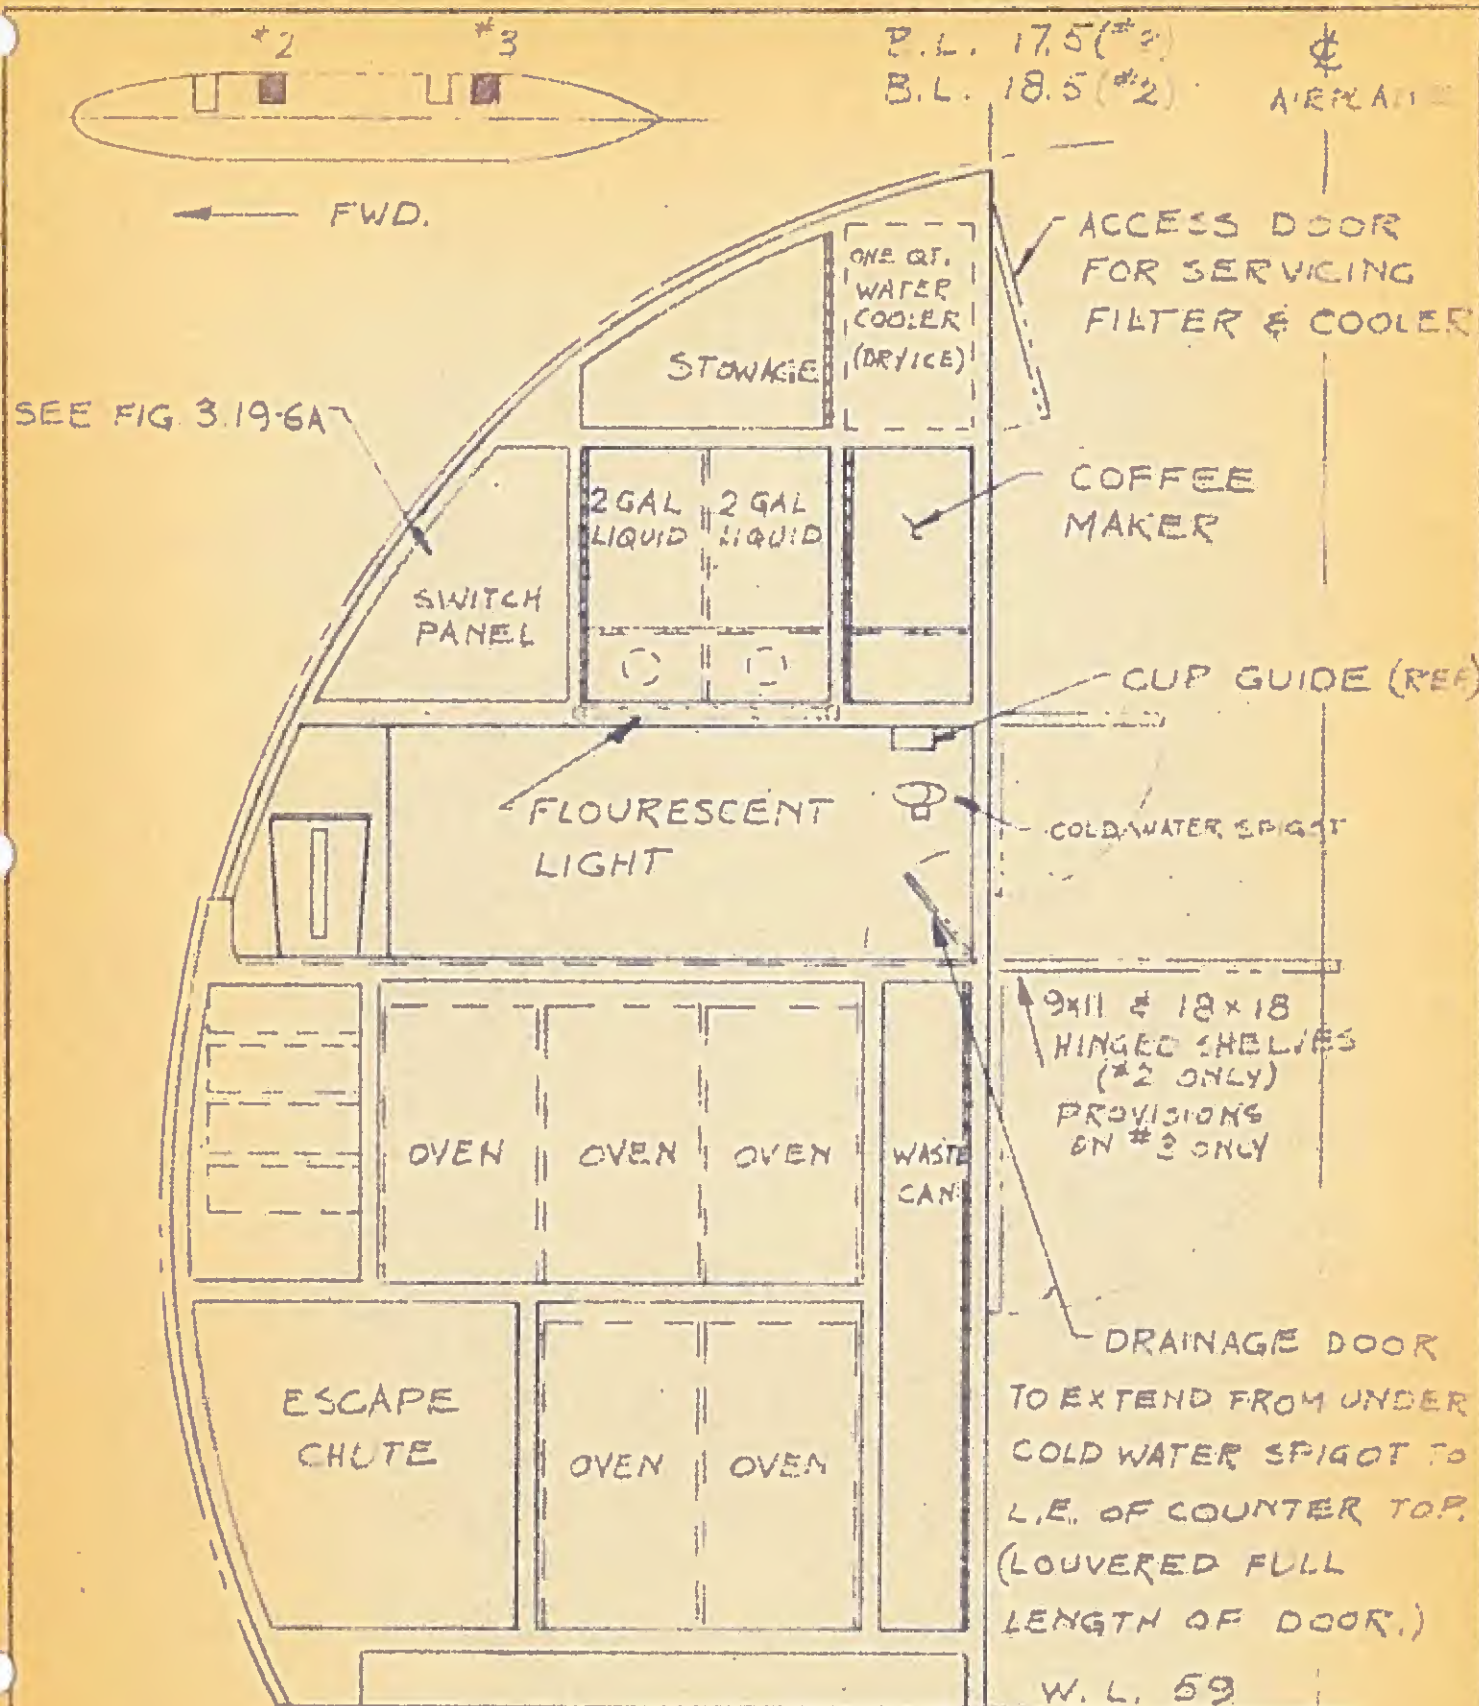 #2
#3
P.L. 17.5 (#2)
B.L. 18.5 (#2)
℄
AIRPLANE
FWD.
ACCESS DOOR
FOR SERVICING
FILTER & COOLER
ONE QT.
WATER
COOLER
(DRY ICE)
STOWAGE
SEE FIG. 3.19-6A
2 GAL
LIQUID
2 GAL
LIQUID
COFFEE
MAKER
SWITCH
PANEL
CUP GUIDE (REF)
FLOURESCENT
LIGHT
COLD WATER SPIGOT
9x11 & 18x18
HINGED SHELVES
(#2 ONLY)
PROVISIONS
ON ONLY
OVEN
OVEN
OVEN
WASTE
CAN
DRAINAGE DOOR
TO EXTEND FROM UNDER
COLD WATER SPIGOT TO
L.E. OF COUNTER TOP.
(LOUVERED FULL
LENGTH OF DOOR.)
ESCAPE
CHUTE
OVEN
OVEN
W. L. 59